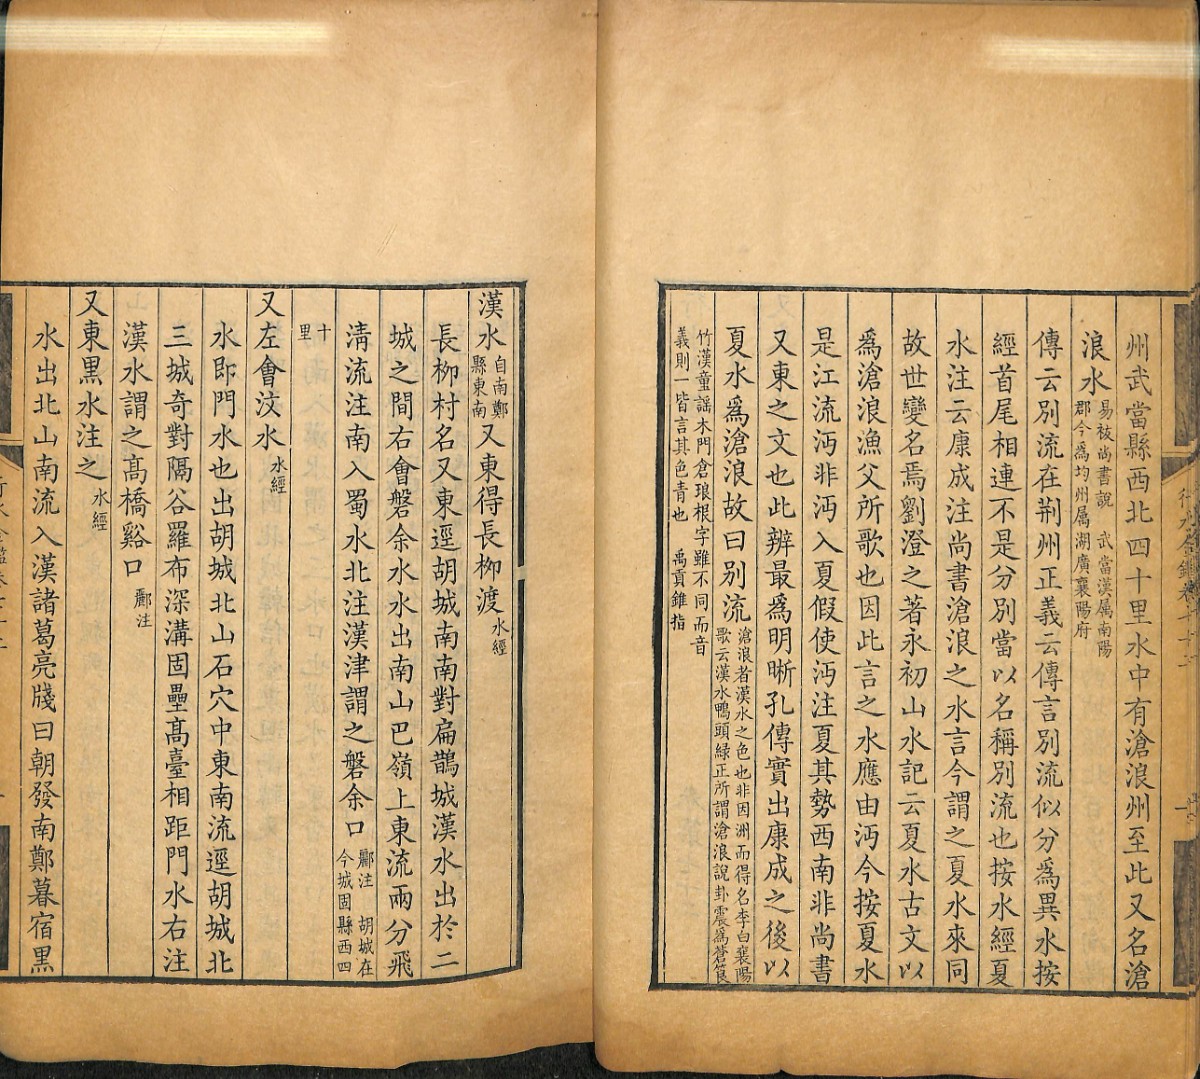 州武當縣西北四十里水中有滄浪州至此又名滄
浪水易祓尚書說 武當漢属南陽郡今爲均州属湖廣襄陽府
傳云別流在荆州正義云傳言別流似分爲異水按
經首尾相連不是分別當以名稱別流也按水經夏
水注云康成注尚書滄浪之水言今謂之夏水來同
故世變名焉劉澄之著永初山水記云夏水古文以
爲滄浪漁父所歌也因此言之水應由沔今按夏水
是江流沔非沔入夏假使沔注夏其勢西南非尚書
又東之文也此辨最爲明晰孔傳實出康成之後以
夏水爲滄浪故曰別流滄浪者漢水之色也非因洲而得名李白襄陽歌云漢水鴨頭緑正所謂滄浪說卦震爲蒼筤
竹漢童謡木門倉琅根字雖不同而音義則一皆言其色青也 禹貢錐指
漢水自南鄭縣東南又東得長栁渡水經
長栁村名又東逕胡城南南對扁鵲城漢水出於二
城之間右會磐余水水出南山巴嶺上東流兩分飛
淸流注南入蜀水北注漢津謂之磐余口酈注 胡城在今城固縣西四
十里
又左會汶水水經
水即門水也出胡城北山石穴中東南流逕胡城北
三城奇對隔谷羅布深溝固壘髙臺相距門水右注
漢水謂之髙橋谿口酈注
又東黒水注之水經
水出北山南流入漢諸葛亮牋曰朝發南鄭暮宿黒